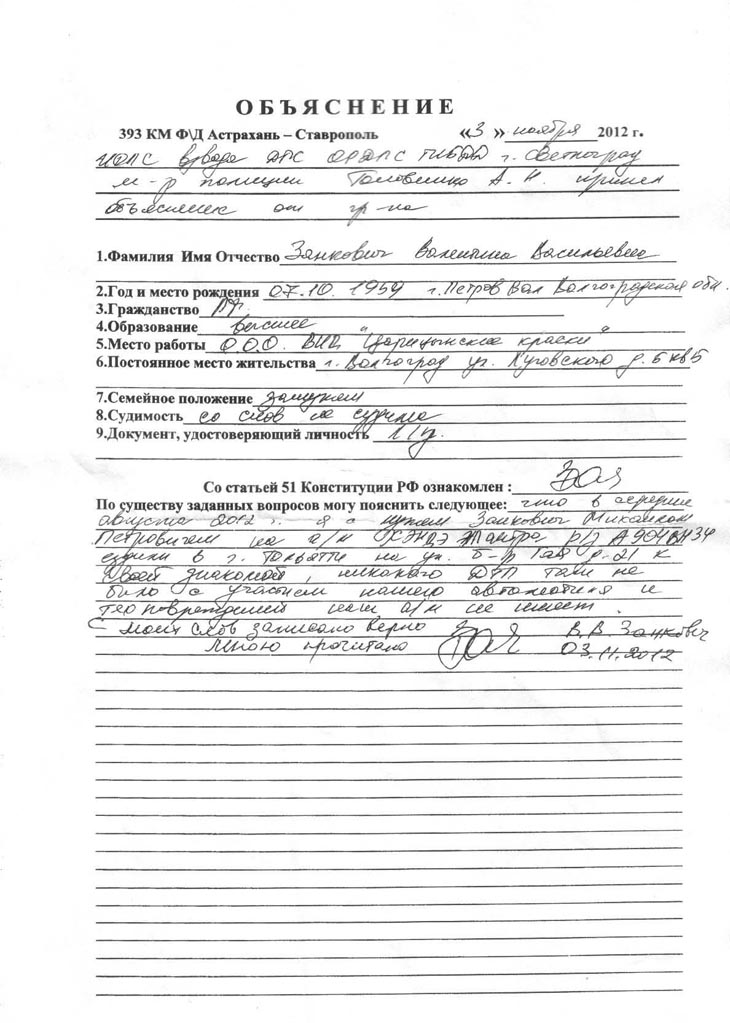 ОБЪЯСНЕНИЕ
393 КМ Ф\Д Астрахань – Ставрополь «3» ноября 2012 г.
взвода ДПС ОРДПС ГИБДД г. Светлоград
м-р полиции Головенко А. Н. принял
объяснение от гр-на
1.Фамилия Имя Отчество Занкович Валентина Васильевна
2.Год и место рождения 07.10. 1959 г. Петров Вал Волгоградская обл.
3.Гражданство РФ
4.Образование высшее
5.Место работы О.О.О. "Царицынские краски"
6.Постоянное место жительства г. Волгоград ул. д. 5 кв 5
7.Семейное положение замужем
8.Судимость со слов не судима
9.Документ, удостоверяющий личность
Со статьей 51 Конституции РФ ознакомлен :
По существу заданных вопросов могу пояснить следующее: что в середине
августа 2012 г. я с мужем Занкович Михаилом
Петровичем на а/м р/з
ездили в г. Тольятти на ул. б-р Гая д-21 к
своей знакомой, никакого ДТП там не
было с участием нашего автомобиля и
повреждений наш а/м не имеет.
С моих слов записано верно В.В. Занкович
Мною прочитано 03.11.2012